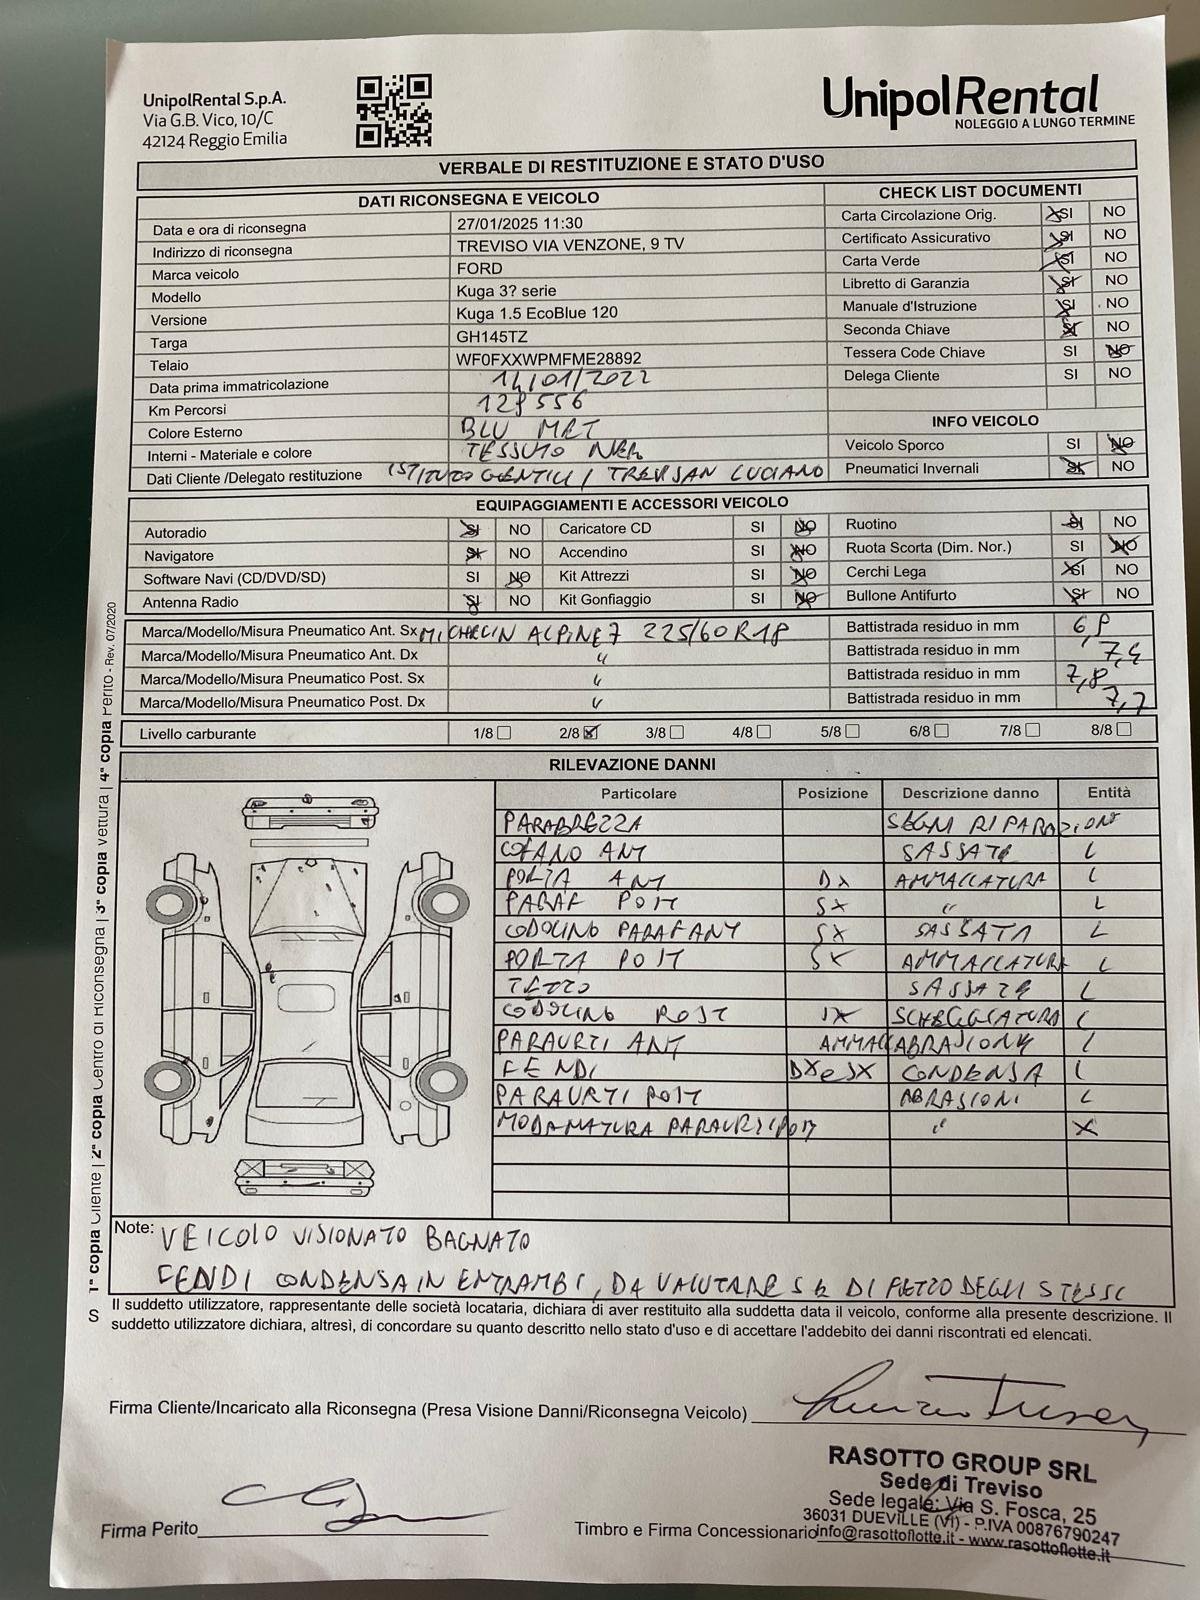 UnipolRental S.p.A.
Via G.B. Vico, 10/C
42124 Reggio Emilia
UnipolRental
NOLEGGIO A LUNGO TERMINE
VERBALE DI RESTITUZIONE E STATO D'USO
DATI RICONSEGNA E VEICOLO
Data e ora di riconsegna 27/01/2025 11:30
Indirizzo di riconsegna TREVISO VIA VENZONE, 9 TV
Marca veicolo FORD
Modello Kuga 3? serie
Versione Kuga 1.5 EcoBlue 120
Targa GH145TZ
Telaio WF0FXXWPMFME28892
Data prima immatricolazione 14/01/2022
Km Percorsi 128556
Colore Esterno BLU MET
Interni - Materiale e colore TESSUTO NERO
Dati Cliente /Delegato restituzione ISTITUTO GENTILI / TREVISAN LUCIANO
CHECK LIST DOCUMENTI
Carta Circolazione Orig. SI NO
Certificato Assicurativo SI NO
Carta Verde SI NO
Libretto di Garanzia SI NO
Manuale d'Istruzione SI NO
Seconda Chiave SI NO
Tessera Code Chiave SI NO
Delega Cliente SI NO
INFO VEICOLO
Veicolo Sporco SI NO
Pneumatici Invernali SI NO
EQUIPAGGIAMENTI E ACCESSORI VEICOLO
Autoradio SI NO Caricatore CD SI NO Ruotino SI NO
Navigatore SI NO Accendino SI NO Ruota Scorta (Dim. Nor.) SI NO
Software Navi (CD/DVD/SD) SI NO Kit Attrezzi SI NO Cerchi Lega SI NO
Antenna Radio SI NO Kit Gonfiaggio SI NO Bullone Antifurto SI NO
Marca/Modello/Misura Pneumatico Ant. Sx MICHELIN ALPINE 7 225/60 R18 Battistrada residuo in mm 6,8
Marca/Modello/Misura Pneumatico Ant. Dx " Battistrada residuo in mm 7,4
Marca/Modello/Misura Pneumatico Post. Sx " Battistrada residuo in mm 7,8
Marca/Modello/Misura Pneumatico Post. Dx " Battistrada residuo in mm 7,7
Livello carburante 1/8 2/8 3/8 4/8 5/8 6/8 7/8 8/8
RILEVAZIONE DANNI
Particolare Posizione Descrizione danno Entità
PARABREZZA SEGNI RIPARAZIONE
COFANO ANT SASSATE L
PORTA ANT DX AMMACCATURA L
PARAF POST SX " L
CODOLINO PARAF ANT SX SASSATA L
PORTA POST SX AMMACCATURA L
TETTO SASSATE L
CODOLINO POST SCHEGGIATURA L
PARAURTI ANT AMMAC ABRASIONI L
FENDI DX e SX CONDENSA L
PARAURTI POST ABRASIONI L
MODANATURA PARAURTI POST " X
Note: VEICOLO VISIONATO BAGNATO
FENDI CONDENSA IN ENTRAMBI, DA VALUTARE SE DIFETTO DEGLI STESSI
Il suddetto utilizzatore, rappresentante delle società locataria, dichiara di aver restituito alla suddetta data il veicolo, conforme alla presente descrizione. Il
suddetto utilizzatore dichiara, altresì, di concordare su quanto descritto nello stato d'uso e di accettare l'addebito dei danni riscontrati ed elencati.
Firma Cliente/Incaricato alla Riconsegna (Presa Visione Danni/Riconsegna Veicolo)
RASOTTO GROUP SRL
Sede di Treviso
Sede legale: Via S. Fosca, 25
36031 DUEVILLE (VI) - P.IVA 00876790247
info@rasottoflotte.it - www.rasottoflotte.it
Firma Perito
Timbro e Firma Concessionario
1° copia Cliente | 2° copia Centro di Riconsegna | 3° copia vettura | 4° copia Perito - Rev. 07/2020
S